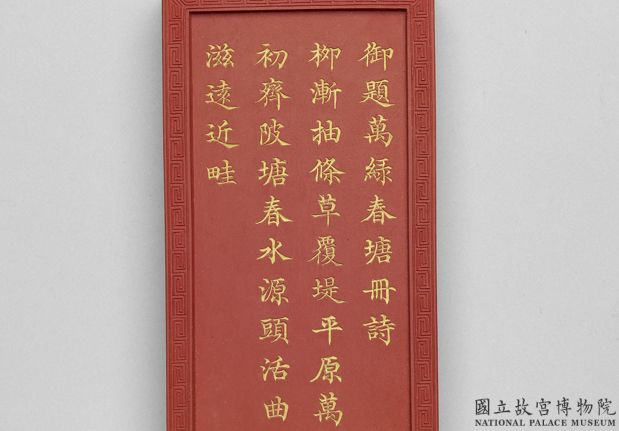 御題萬綠春塘冊詩
柳漸抽條草覆堤平原萬
初齊陂塘春水源頭活曲
滋遠近畦
國立故宮博物院
NATIONAL PALACE MUSEUM